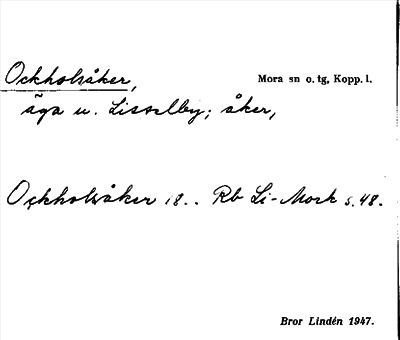 Ockholsåker, Mora sn o. tg, Kopp. l.
äga u. Lisselby; åker,
Ockholsåker 18.. Rb Li-Mork s. 48.
Bror Lindén 1947.